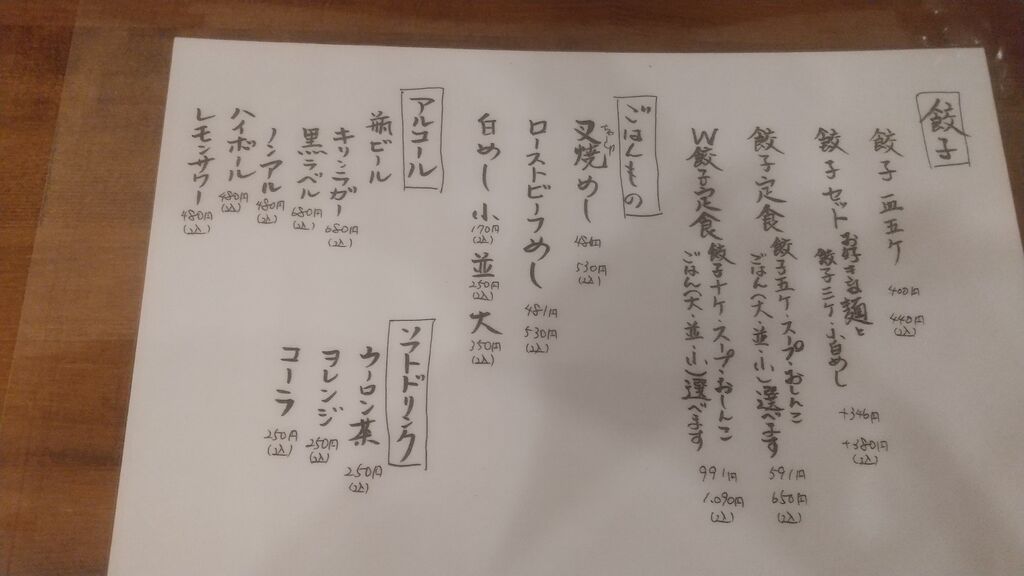 餃子
餃子一皿五ケ
400円
440円
(込)
餃子セット お好きな麺と
餃子三ケ・小白めし
+346円
+380円
(込)
餃子定食 餃子五ケ・スープ・おしんこ
ごはん(大・並・小)選べます
591円
650円
(込)
W餃子定食 餃子十ケ・スープ・おしんこ
ごはん(大・並・小)選べます
991円
1.090円
(込)
ごはんもの
叉焼めし
530円
(込)
ローストビーフめし
481円
530円
(込)
白めし 小 170円 (込)
並 250円 (込)
大 350円 (込)
アルコール
瓶ビール
キリンラガー 680円 (込)
黒ラベル 680円 (込)
ノンアル 480円 (込)
ハイボール 480円 (込)
レモンサワー 480円 (込)
ソフトドリンク
ウーロン茶 250円 (込)
オレンジ 250円 (込)
コーラ 250円 (込)